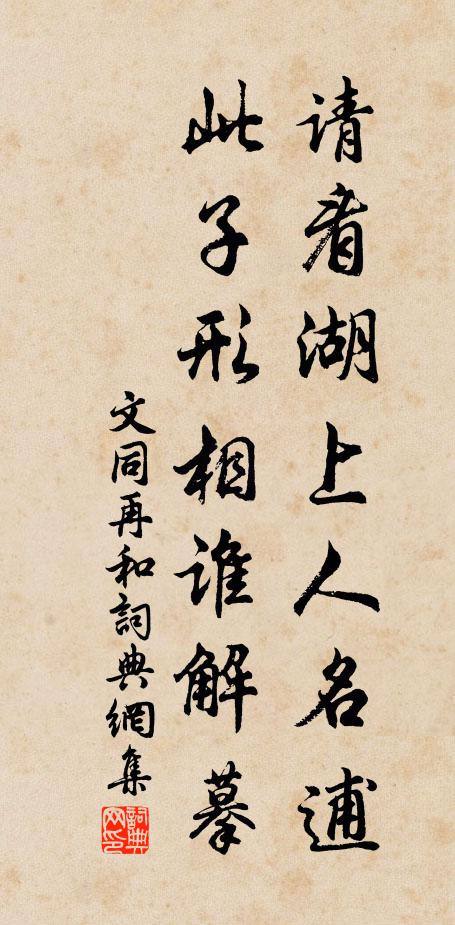 请看湖上人名逋
此子形相谁解摹
文同再和詞典網集
詞典网印